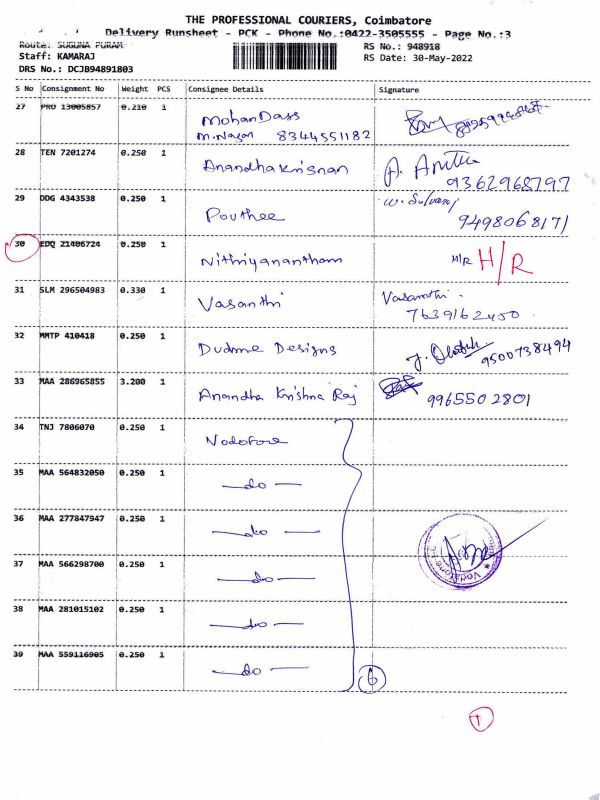 THE PROFESSIONAL COURIERS, Coimbatore
Delivery Runsheet - PCK - Phone No.:0422-3505555 - Page No.:3
Route: SUGUNA PURAM
RS No.: 948918
Staff: KAMARAJ
RS Date: 30-May-2022
DRS No.: DCJB94891803
S No Consignment No Weight PCS Consignee Details Signature
27 PRO 13005857 0.210 1 Mohan Dass
M.Nagar 8344551182
28 TEN 7201274 0.250 1 Anandhakrisnan A. Anitha
9362968797
29 DDG 4343538 0.250 1 Pouthee W. Selvaraj
9498068171
30 EDQ 21406724 0.250 1 Nithiyanantham H/R H/R
31 SLM 296504983 0.330 1 Vasanthi Vasanthi
7639162450
32 MMTP 410418 0.250 1 Dudme Designs 9500738494
33 MAA 286965855 3.200 1 Anandha Krishna Raj 9965502801
34 TNJ 7806070 0.250 1 Nodofone
35 MAA 564832050 0.250 1 —do—
36 MAA 277847947 0.250 1 —do—
37 MAA 566298700 0.250 1 —do—
38 MAA 281015102 0.250 1 —do—
39 MAA 559116905 0.250 1 —do—
6
1